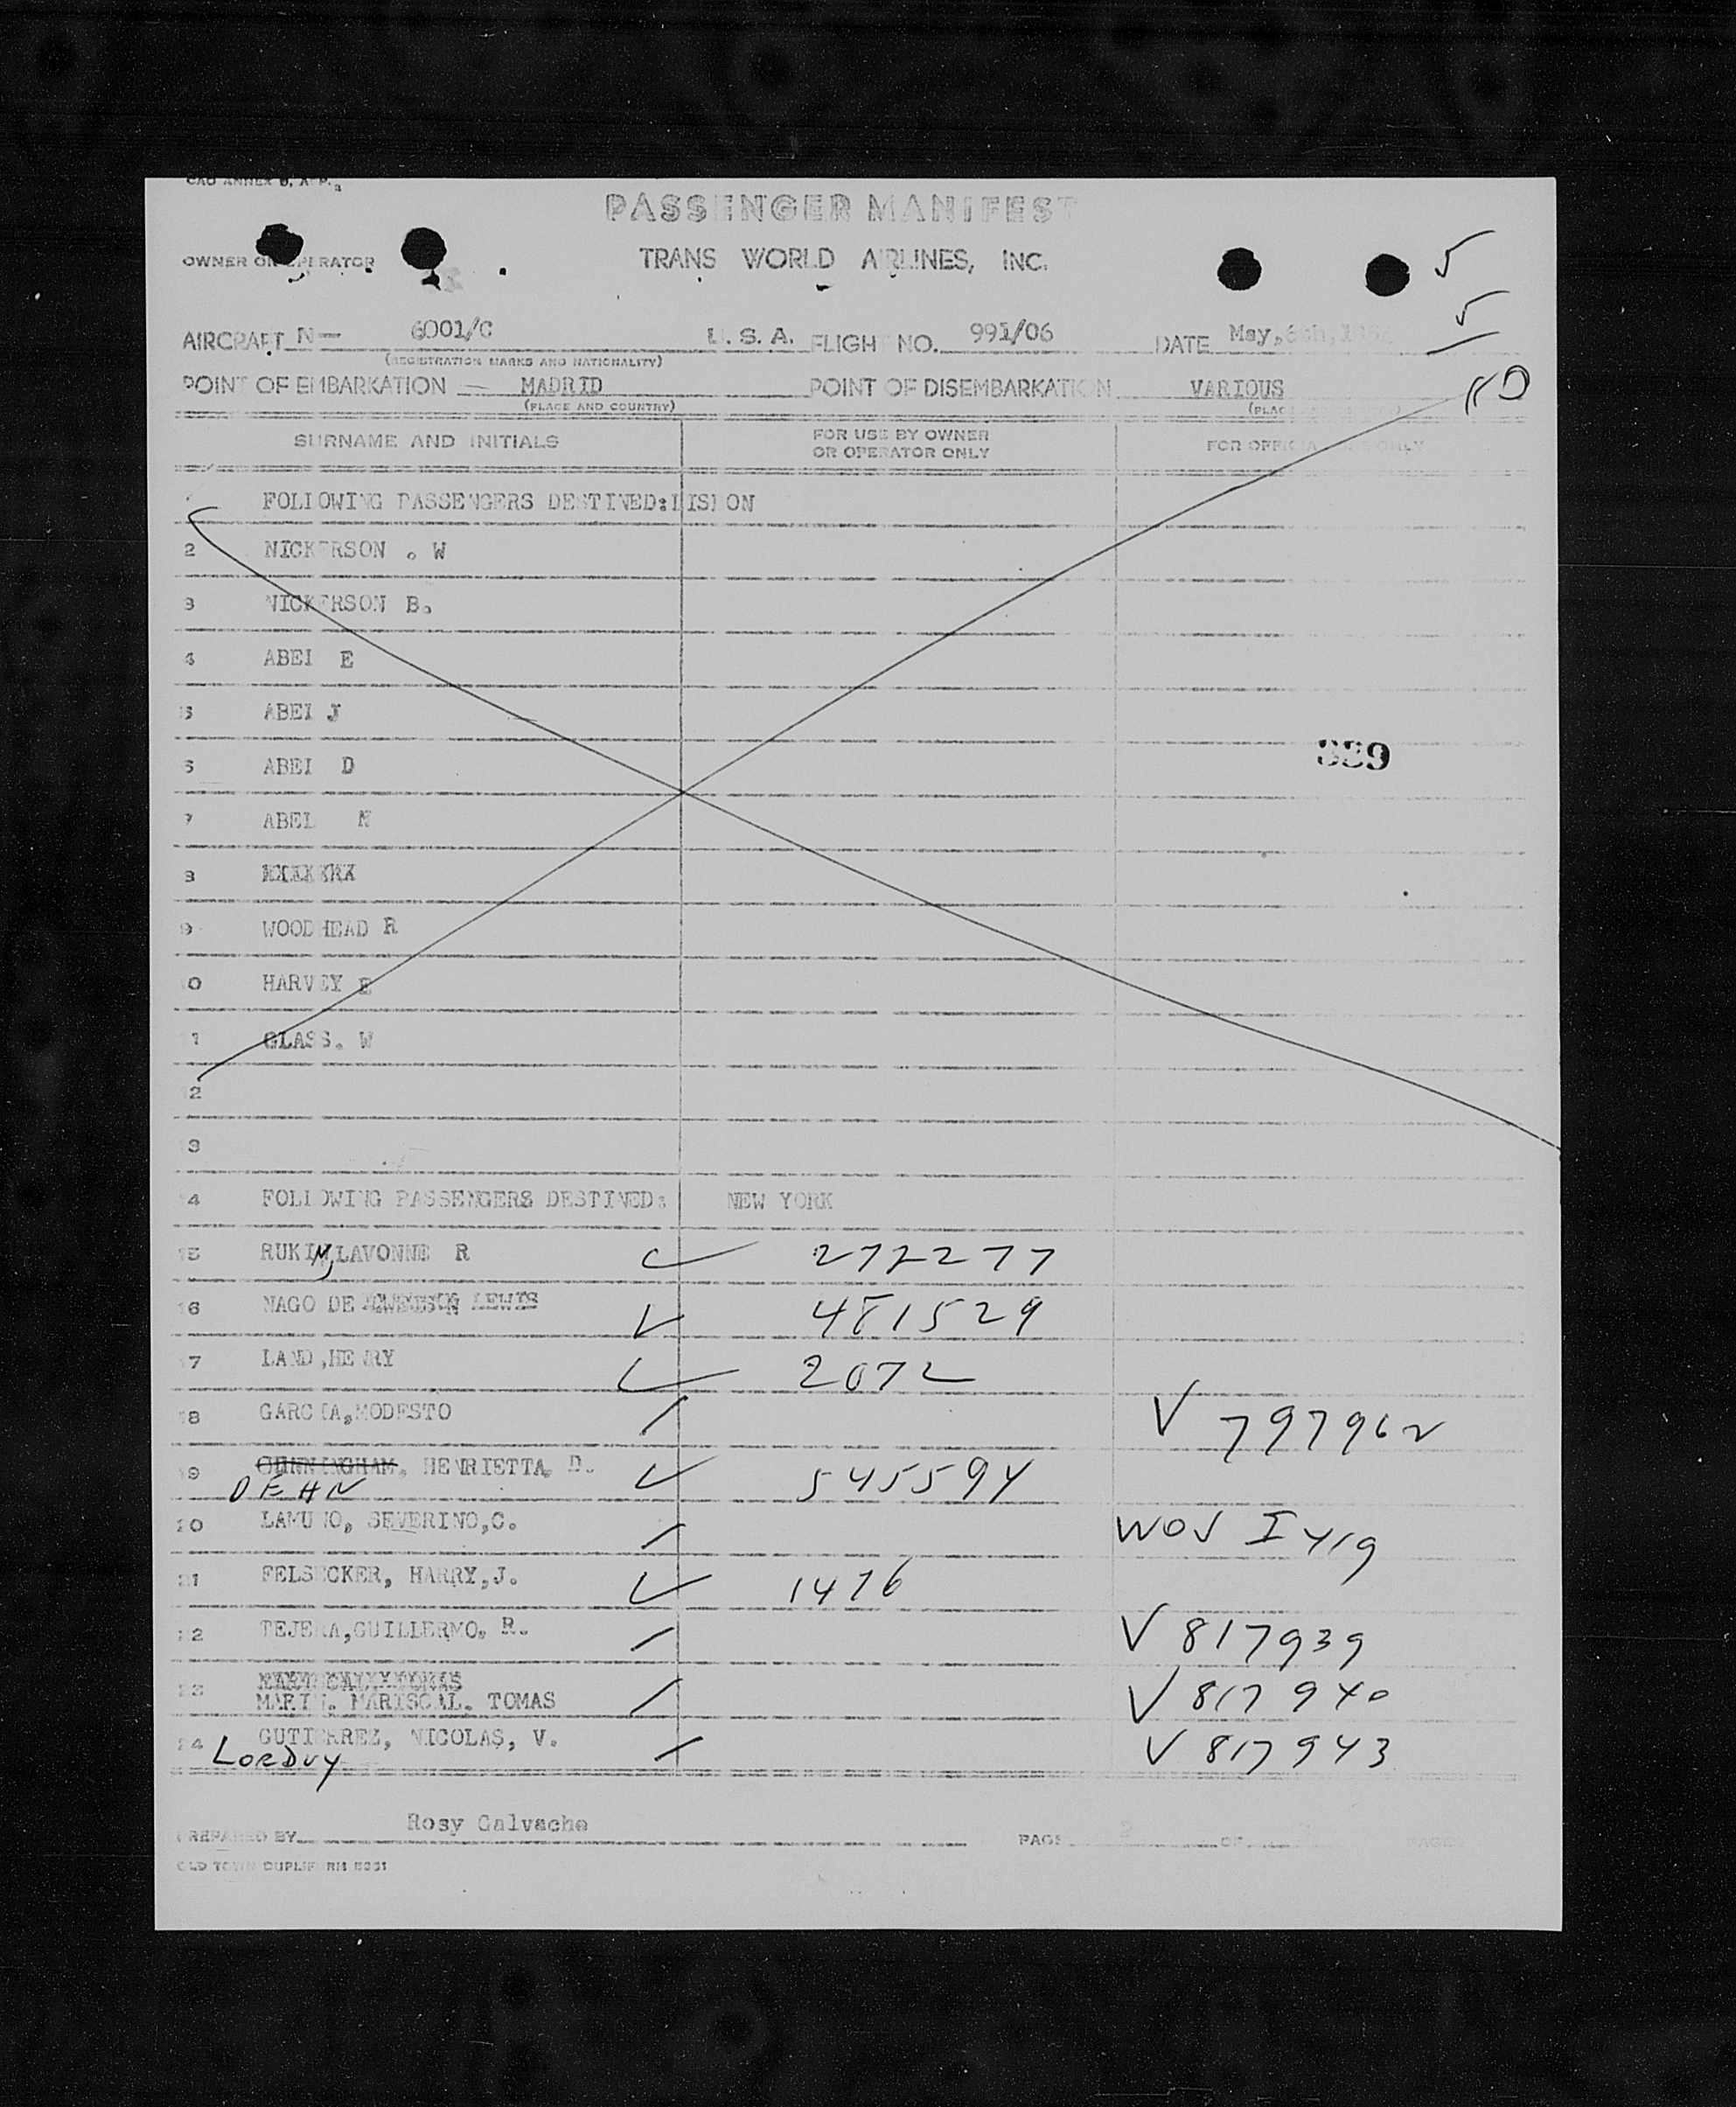 PASSENGER MANIFEST
OWNER OR OPERATOR TRANS WORLD AIRLINES, INC. 5
5
AIRCRAFT N- 6001/C U.S.A. FLIGHT NO. 991/06 DATE May,
(REGISTRATION MARKS AND NATIONALITY)
POINT OF EMBARKATION - MADRID POINT OF DISEMBARKATION VARIOUS
(PLACE AND COUNTRY)
SURNAME AND INITIALS FOR USE BY OWNER OR OPERATOR ONLY FOR OFFICIAL USE ONLY
FOLLOWING PASSENGERS DESTINED: LISBON
2 NICKERSON . W
3 NICKERSON B.
4 ABEL E
5 ABEL J
6 ABEL D
7 ABEL N
8
9 WOODHEAD R
10 HARVEY E
11 GLASS. W
12
13
14 FOLLOWING PASSENGERS DESTINED: NEW YORK
15 RUKIN, LAVONNE R 272277
16 NAGO DE LEWIS 481529
17 LAND, HENRY 2072
18 GARCIA, MODESTO V 797962
19 CUNNINGHAM. HENRIETTA. D. 545594
DEHN
20 LAMUNO, SEVERINO, C. I 419
21 FELSECKER, HARRY, J. 1476
22 TEJERA, GUILLERMO. R. V 817939
23 MARIN. MARISCAL. TOMAS V 817940
24 GUTIERREZ, NICOLAS, V. V 817943
LORDUY
PREPARED BY Rosy Galvache PAGE 2 OF PAGES
OLD TOWN DUPLIFORM